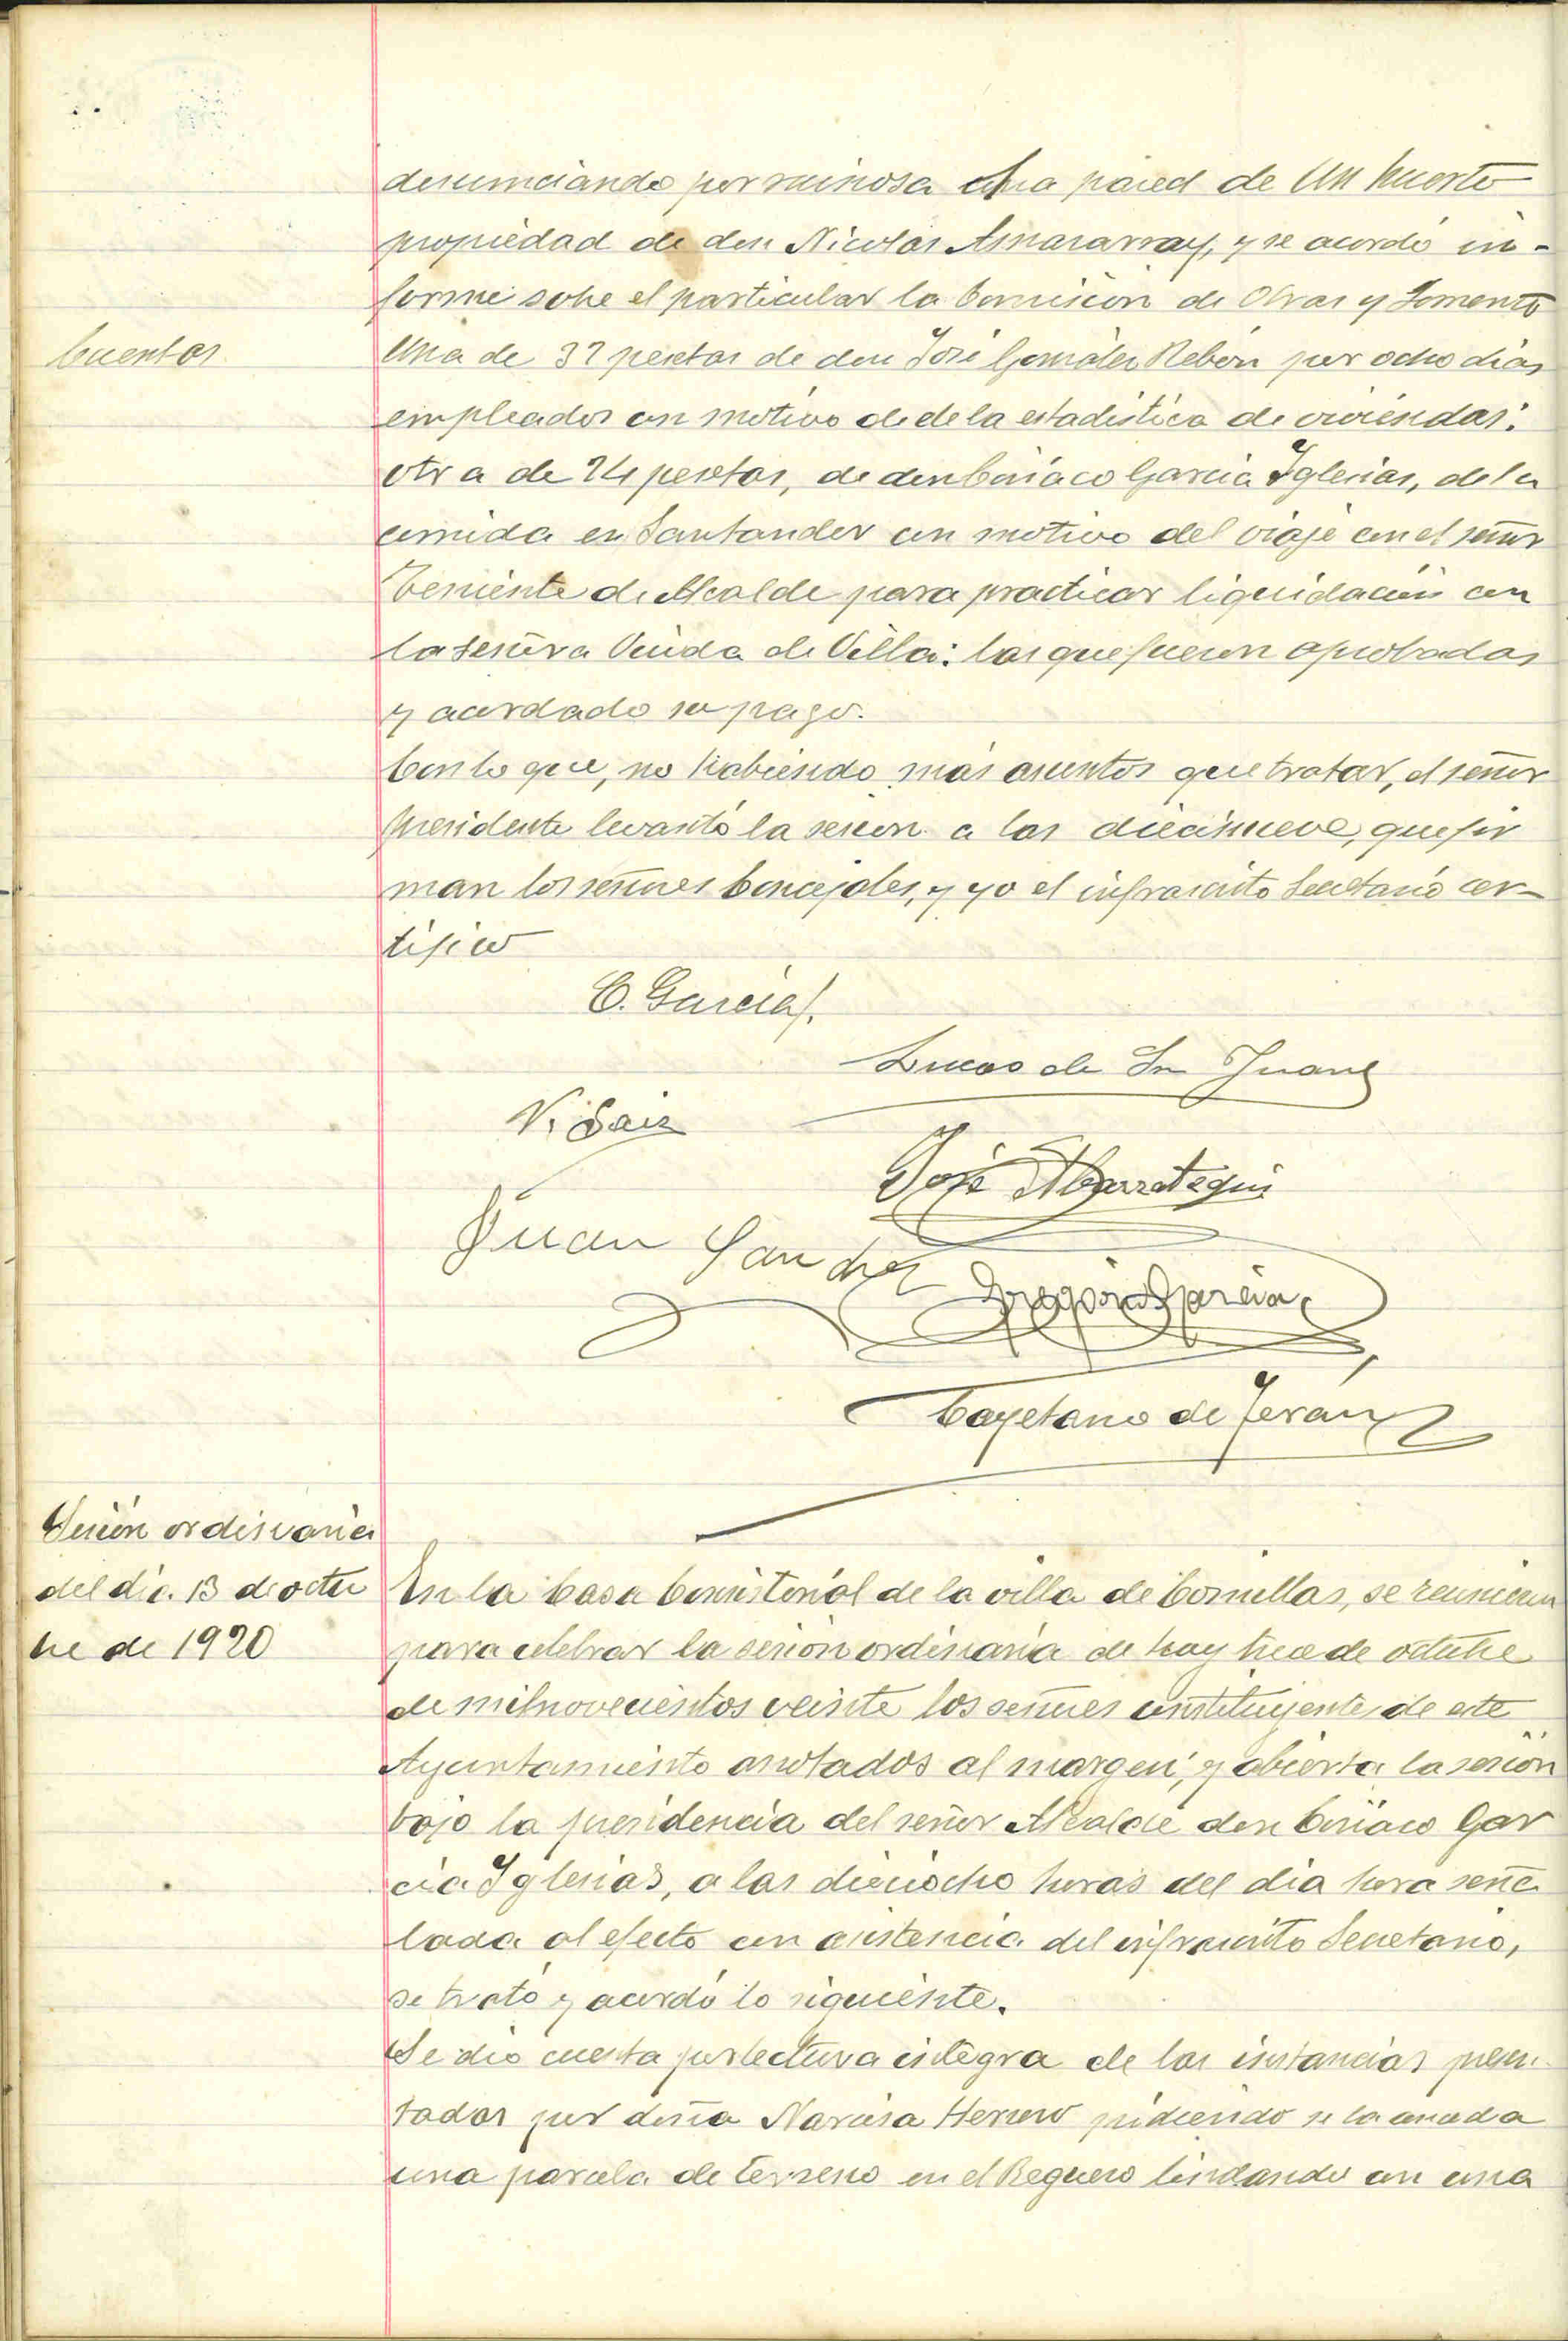 denunciando por ruinosa una pared de un huerto
propiedad de don Nicolas y se acordó in-
forme sobe el particular la Comision de Obras y Fomento
Cuentas
Una de 32 pesetas de don José González Rebón por ocho dias
empleados con motivo de de la estadistica de viviendas:
otra de 24 pesetas, de don Ciriaco Garcia Iglesias, de la
comida en Santander con motivo del viaje con el señor
Teniente de Alcalde para practicar liquidacion con
la señora Viuda de Villa: las que fueron aprobadas
y acordado su pago.
Con lo que, no habiendo más asuntos que tratar, el señor
Presidente levantó la sesion a las diecinueve, que fir
man los señores Concejales, y yo el infrascrito Secretario cer-
tifico
C. Garcia
Lucas de Sn Juan
V. Saiz
José Abarrategui
Juan Sanchez
Gregorio Garcia
Cayetano de Teran
Sesion ordinaria
del dia 13 de octu
bre de 1920
En la Casa Consistorial de la villa de Comillas, se reunieron
para celebrar la sesion ordinaria de hoy trece de octubre
de mil novecientos veinte los señores constituyentes de este
Ayuntamiento anotados al margen, y abierta la sesion
bajo la presidencia del señor Alcalde don Ciriaco Gar
cia Iglesias, a las dieciocho horas del dia hora seña
lada al efecto con asistencia del infrascrito Secretario,
se trató y acordó lo siguiente.
Se dió cuenta por lectura integra de las instancias presen
tadas por doña Narcisa Herrero pidiendo se la conceda
una parcela de terreno en el Reguero lindando con una